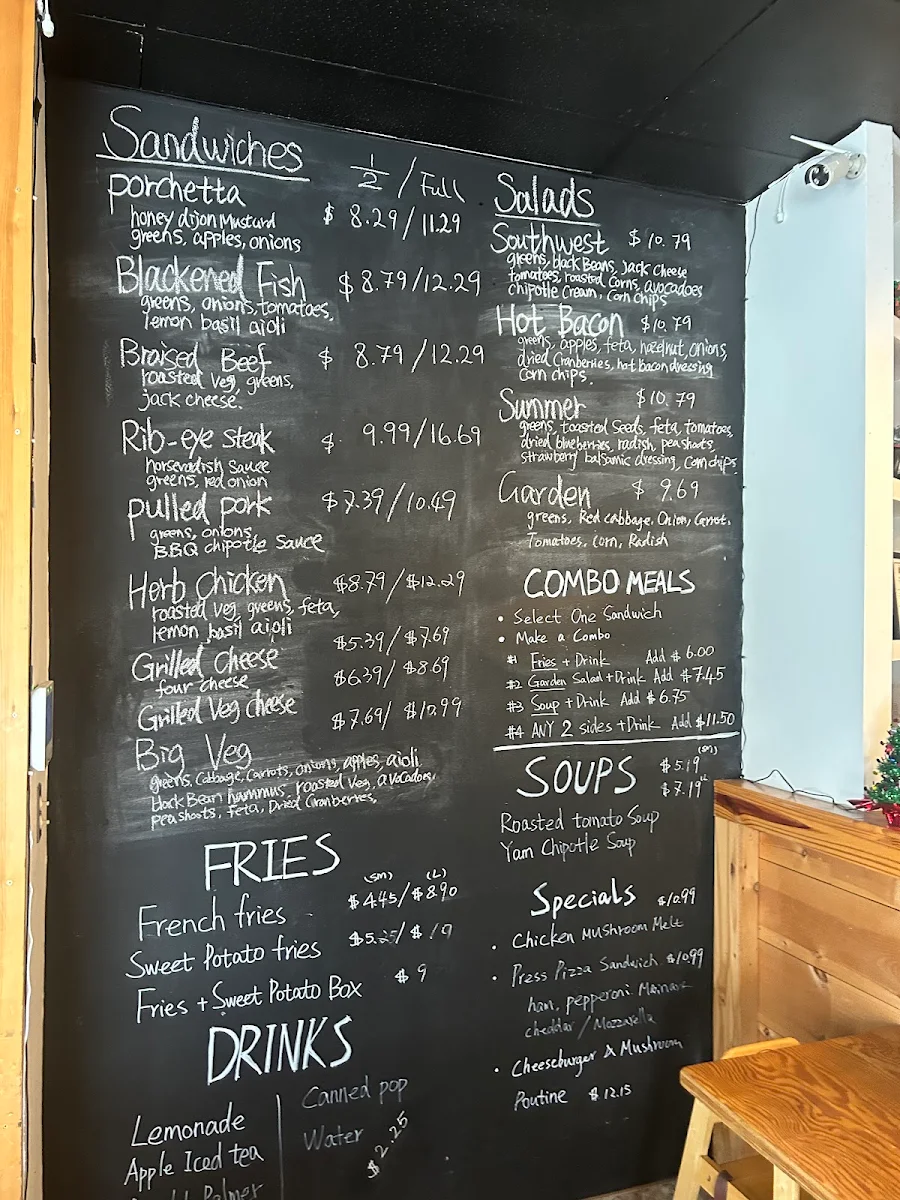 Sandwiches
1/2 / Full
porchetta $ 8.29/11.29
honey dijon Mustard
greens, apples, onions
Blackened Fish $8.79/12.29
greens, onions, tomatoes,
lemon basil aioli
Braised Beef $ 8.79/12.29
roasted veg, greens,
jack cheese.
Rib-eye steak $ 9.99/16.69
horseradish sauce
greens, red onion
pulled pork $7.39/10.49
greens, onions,
BBQ chipotle sauce
Herb Chicken $8.79/$12.29
roasted veg, greens, feta,
lemon basil aioli
Grilled Cheese $5.39/$7.69
four cheese
Grilled Veg Cheese $6.39/$8.69
Big Veg $7.69/$10.99
greens, Cabbage, Carrots, onions, apples, aioli
black Bean hammus, roasted veg, avocados,
peashoots, feta, Dried Cranberries,
FRIES
(sm) (L)
French fries $4.45/$8.90
Sweet Potato fries
Fries + Sweet Potato Box $9
DRINKS
Lemonade
Apple Iced tea
Palmer
Canned pop
Water
$2.25
Salads
Southwest $10.79
greens, black Beans, Jack cheese
tomatoes, roasted corns, avocadoes
chipotle Cream, Corn chips
Hot Bacon $10.79
greens, apples, feta, hazelnut, onions,
dried Cranberries, hot bacon dressing
corn chips.
Summer $10.79
greens, toasted Seeds, feta, tomatoes,
dried blueberries, radish, peashoots,
strawberry balsamic dressing, Corn chips
Garden $ 9.69
greens, Red cabbage, Onion, Carrot,
Tomatoes, Corn, Radish
COMBO MEALS
• Select One Sandwich
• Make a Combo
#1 Fries + Drink Add $6.00
#2 Garden Salad + Drink Add $7.45
#3 Soup + Drink Add $6.75
#4 ANY 2 sides + Drink Add $11.50
SOUPS $5.19 (sm)
$7.19 L
Roasted tomato Soup
Yam Chipotle Soup
Specials
$10.99
• Chicken Mushroom Melt
• Press Pizza Sandwich $10.99
ham, pepperoni
cheddar / Mozzarella
• Cheeseburger & Mushroom
Poutine $12.15